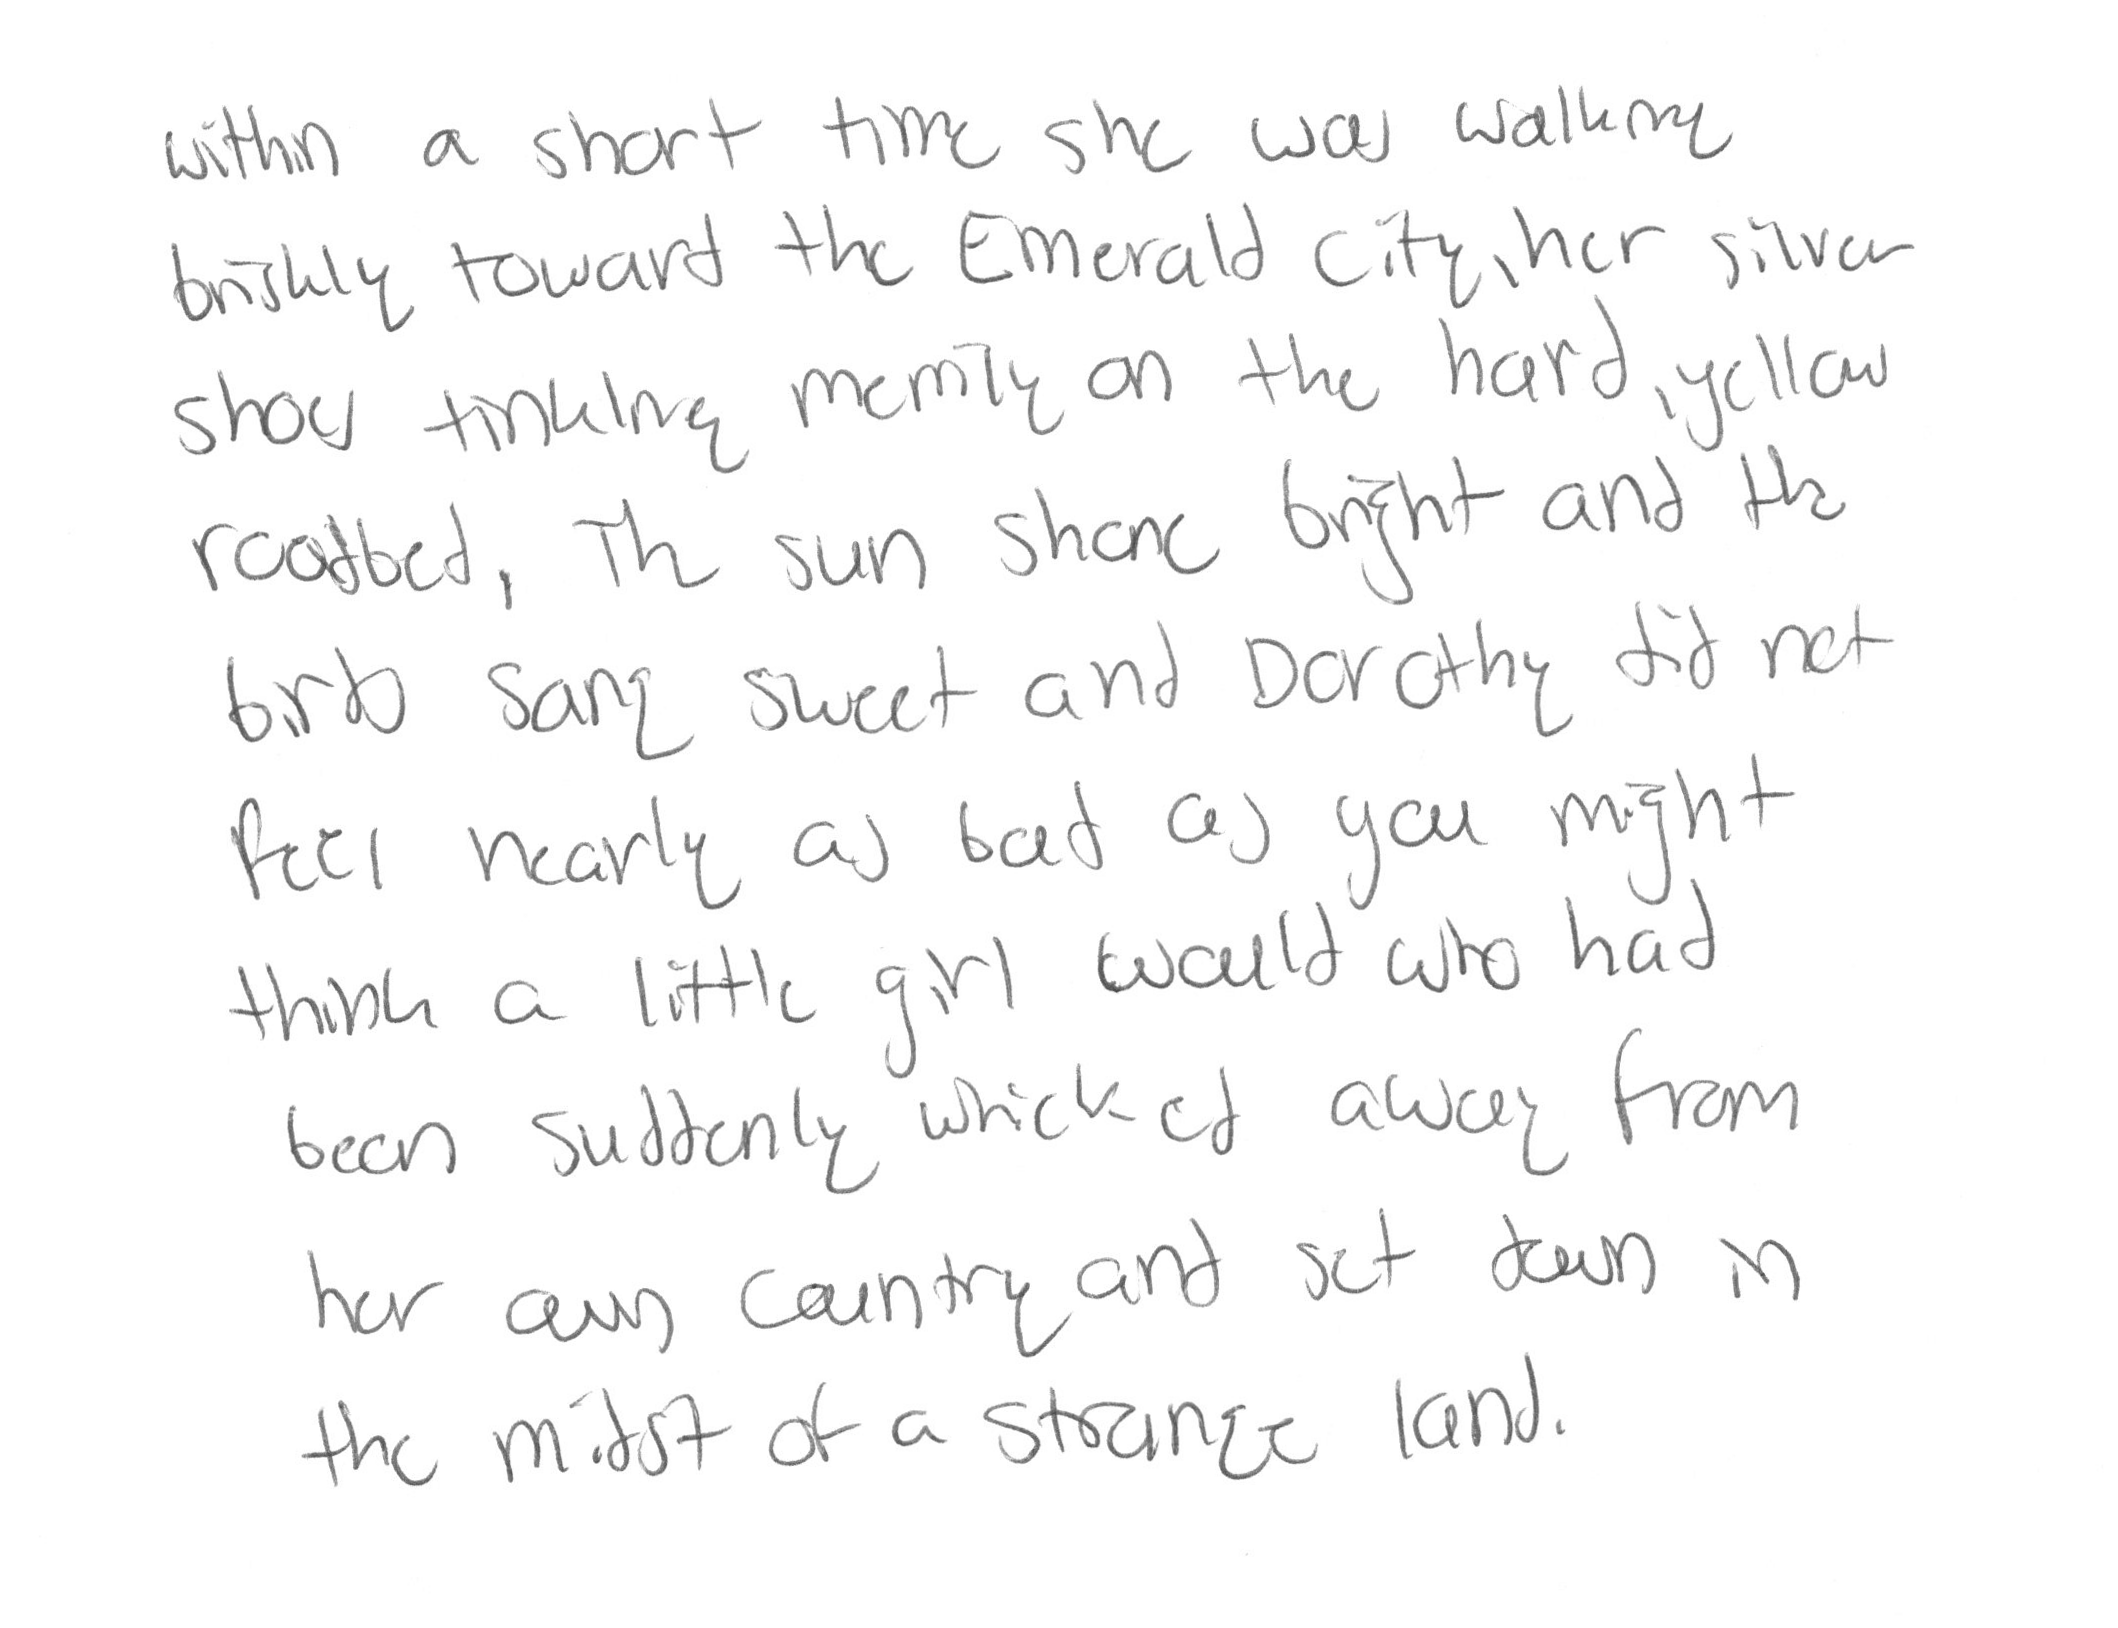 within a short time she was walking
briskly toward the Emerald City, her silver
shoes tinkling merrily on the hard, yellow
roadbed, The sun shone bright and the
birds sang sweet and Dorothy did not
feel nearly as bad as you might
think a little girl would who had
been suddenly whicked away from
her own country and set down in
the midst of a strange land.